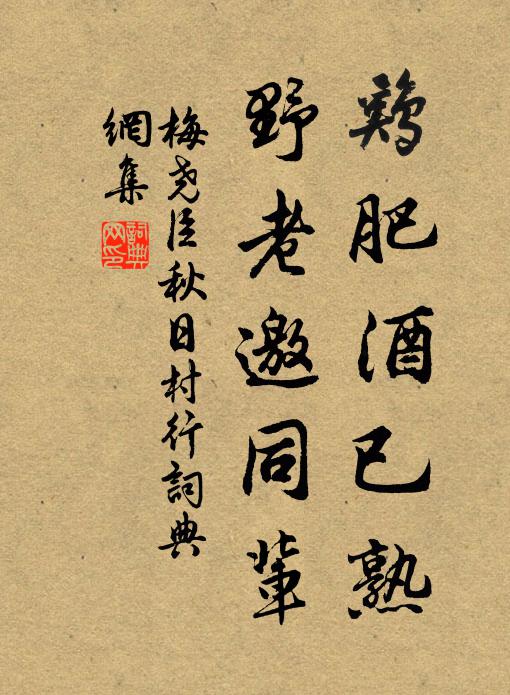 鷄肥酒已熟
野老邀同輩
梅尧臣秋日村行詞典
網集
詞典
网印